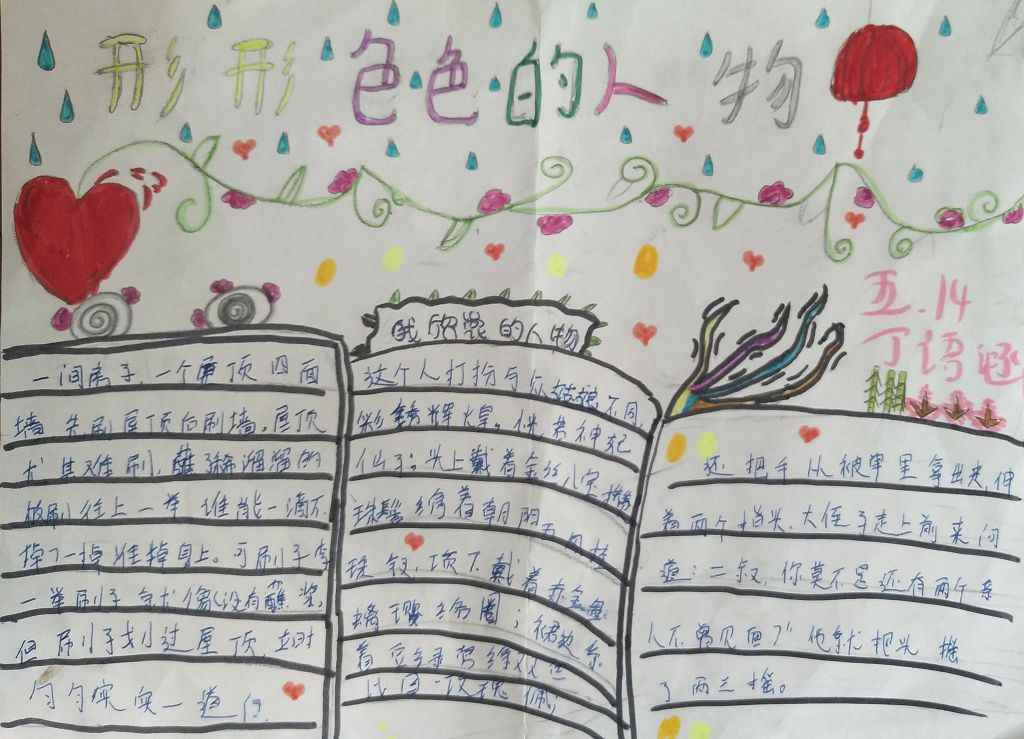 形形色色的人物
五.14
丁语
我欣赏的人物
一间房子,一个屋顶四面
墙先刷屋顶后刷墙。屋顶
尤其难刷,蘸稀溜溜的
板刷往上一举谁能一滴不
掉?一掉准掉身上。可刷子李
一举刷子就像没有蘸浆,
但刷子划过屋顶,立时
匀匀实实一道白
这个人打扮与众姑娘不同,
彩绣辉煌,恍若神妃
仙子;头上戴着金丝八宝攒
珠髻绾着朝阳五凤挂
珠钗,项下戴着赤金盘
螭璎珞圈;裙边系
着豆绿宫绦双
比目玫瑰佩,
还把手从被单里拿出来,伸
着两个指头,大侄子走上前来问
道:二叔,你莫不是还有两个亲
人不曾见面?"他就把头摇
了两三摇。